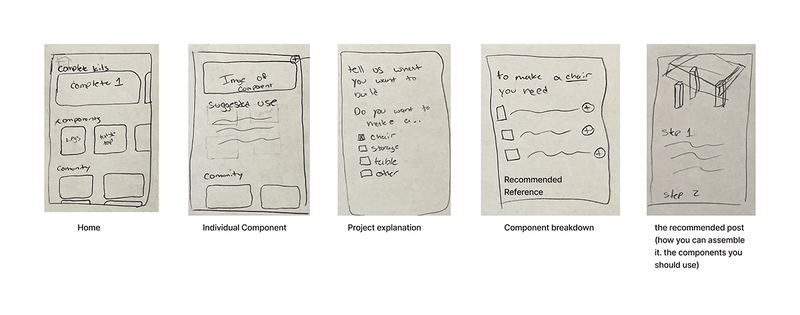 Complet kits
Complete 1
Components
Legs
table top
Comunity
Home
Image of
Component
Suggested use
Comunity
Individual Component
tell us what
you want to
build
Do you want to
make a...
chair
storage
table
other
Project explanation
to make a chair
you need
Recommended
Reference
Component breakdown
Step 1
Step 2
the recommended post
(how you can assemble
it. the components you
should use)